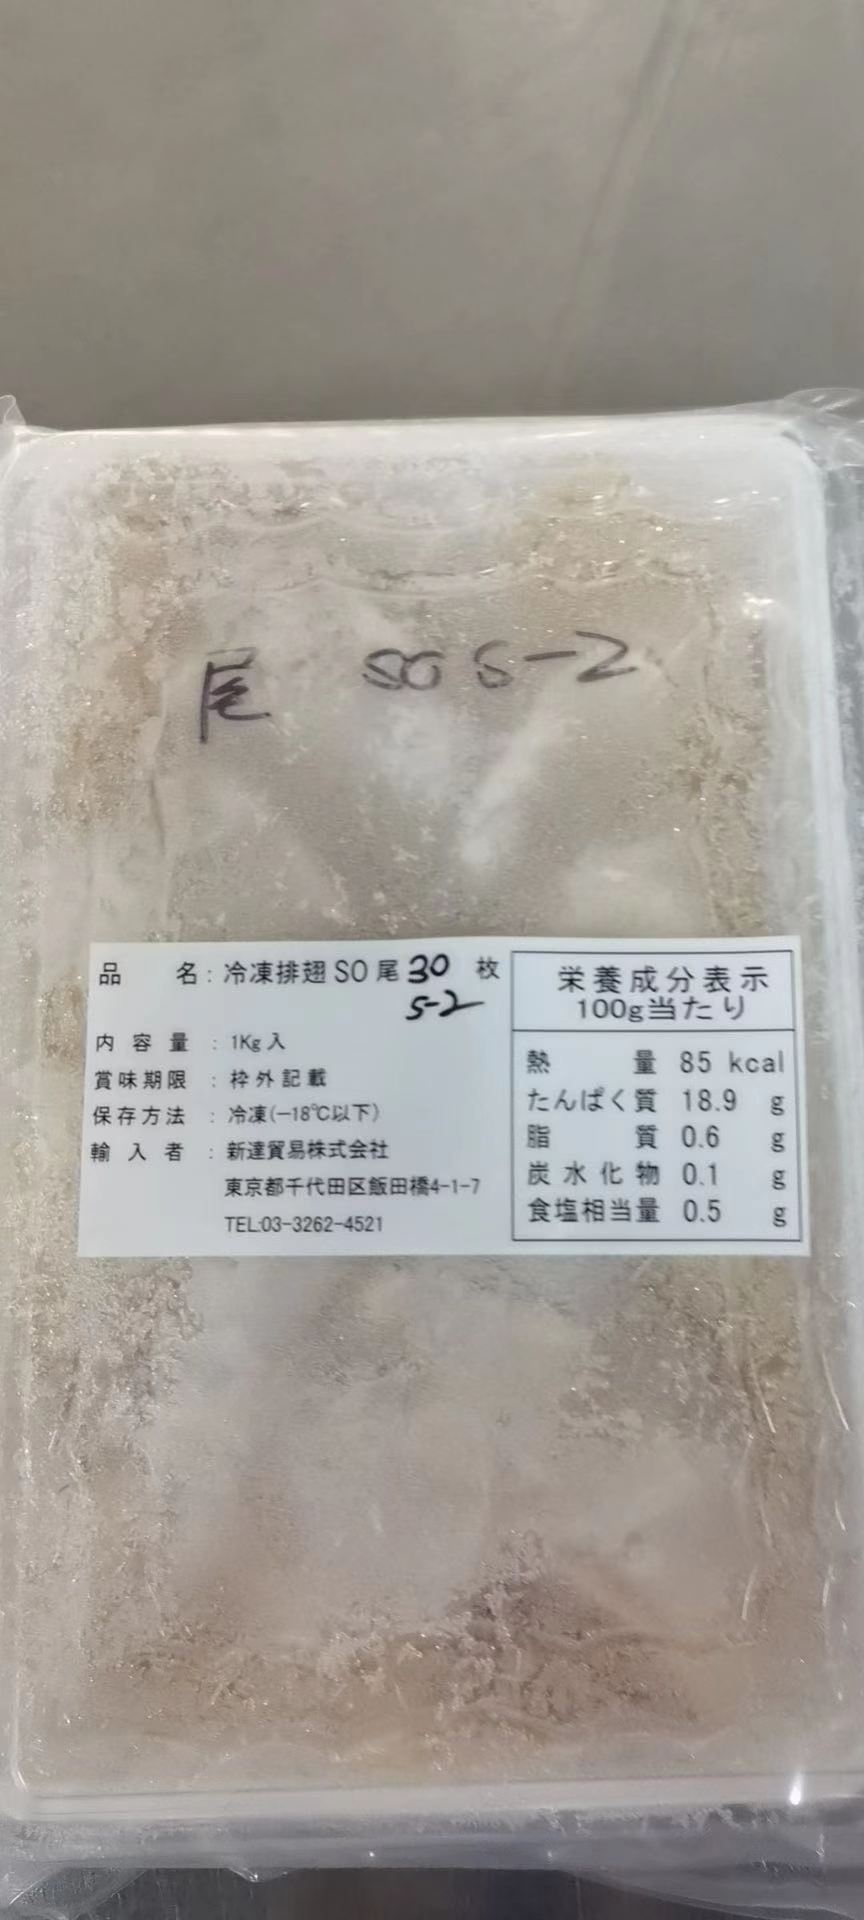 尾 SO S-2
品 名: 冷凍排翅 SO 尾 30 枚
S-2
内容量 : 1Kg 入
賞味期限 : 枠外記載
保存方法 : 冷凍(-18℃以下)
輸入者 : 新達貿易株式会社
東京都千代田区飯田橋4-1-7
TEL:03-3262-4521
栄養成分表示
100g当たり
熱量 85 kcal
たんぱく質 18.9 g
脂質 0.6 g
炭水化物 0.1 g
食塩相当量 0.5 g